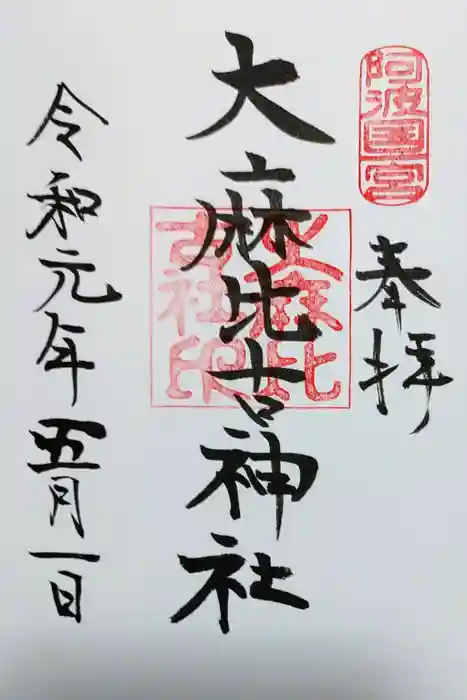 阿波國一宮
奉拝
大麻比古神社
大麻比古社印
令和元年五月一日